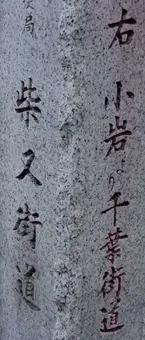 右 小岩より千葉街道
局 柴又街道